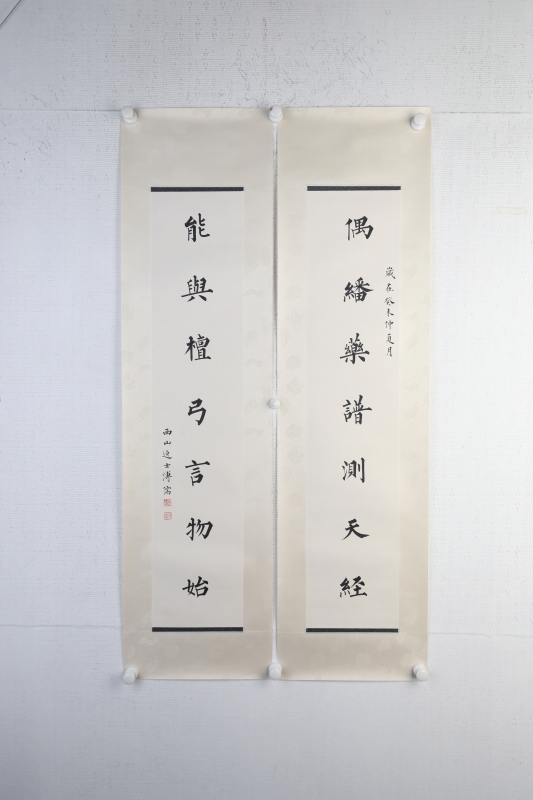 偶繙藥譜測天經
歲在癸未仲夏月
能與檀弓言物始
西山逸士溥儒